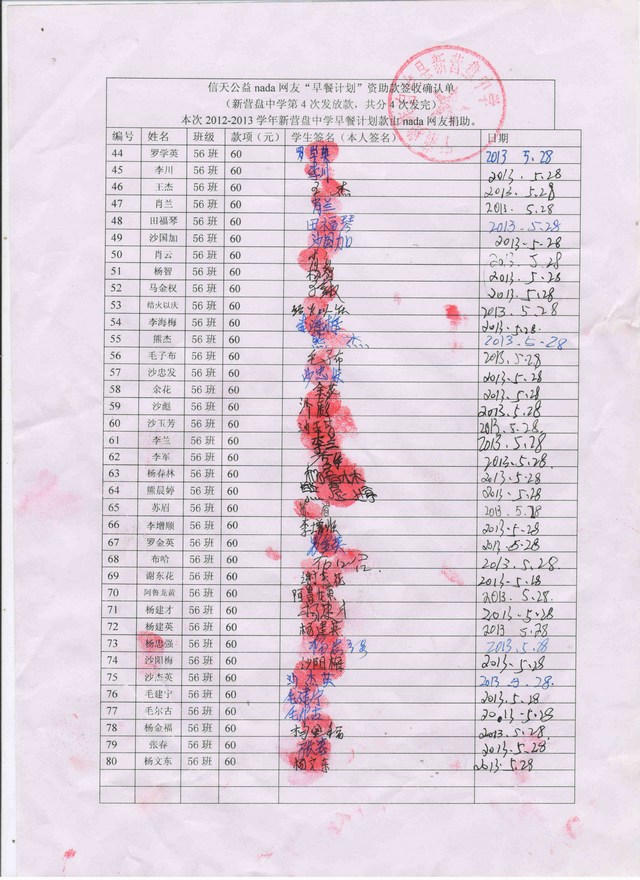 信天公益 nada 网友“早餐计划”资助款签收确认单
（新营盘中学第 4 次发放款，共分 4 次发完）
本次 2012-2013 学年新营盘中学早餐计划款由 nada 网友捐助。
编号 姓名 班级 款项（元） 学生签名（本人签名） 日期
44 罗学英 56 班 60 罗学英 2013 5.28
45 李川 56 班 60 李川 2013.5.28
46 王杰 56 班 60 王杰 2013.5.28
47 肖兰 56 班 60 肖兰 2013.5.28
48 田福琴 56 班 60 田福琴 2013.5.28
49 沙国加 56 班 60 沙国加 2013-5.28
50 肖云 56 班 60 2013.5.28
51 杨智 56 班 60 杨智 2013.5.28
52 马金权 56 班 60 2013.5.28
53 结火以庆 56 班 60 2013.5.28
54 李海梅 56 班 60 李海梅 2013.5.28
55 熊杰 56 班 60 熊杰 2013.5-28
56 毛子布 56 班 60 毛子布 2013.5.28
57 沙忠发 56 班 60 沙忠发 2013.5.28
58 余花 56 班 60 余花 2013.5.28
59 沙彪 56 班 60 沙彪 2013.5.28
60 沙玉芳 56 班 60 2013.5.28
61 李兰 56 班 60 李兰 2013.5.28
62 李军 56 班 60 李军 2013.5.28
63 杨春林 56 班 60 杨春林 2013.5.28
64 熊晨婷 56 班 60 2013.5.28
65 苏眉 56 班 60 苏眉 2013.5.28
66 李增顺 56 班 60 李增顺 2013-5.28
67 罗金英 56 班 60 罗金英 2013.5.28
68 布哈 56 班 60 2013.5.28
69 谢东花 56 班 60 谢东花 2013-5.28
70 阿鲁龙黄 56 班 60 2013.5.28
71 杨建才 56 班 60 杨建才 2013.5.28
72 杨建英 56 班 60 杨建英 2013 5.28
73 杨忠强 56 班 60 杨忠强 2013.5.28
74 沙阳梅 56 班 60 沙阳梅 2013.5.28
75 沙杰英 56 班 60 沙杰英 2013.5.28.
76 毛建宁 56 班 60 毛建宁 2013.5.28
77 毛尔古 56 班 60 毛尔古 2013-5.28
78 杨金福 56 班 60 杨金福 2013.5.28
79 张春 56 班 60 张春 2013.5.28
80 杨文东 56 班 60 杨文东 2013.5.28